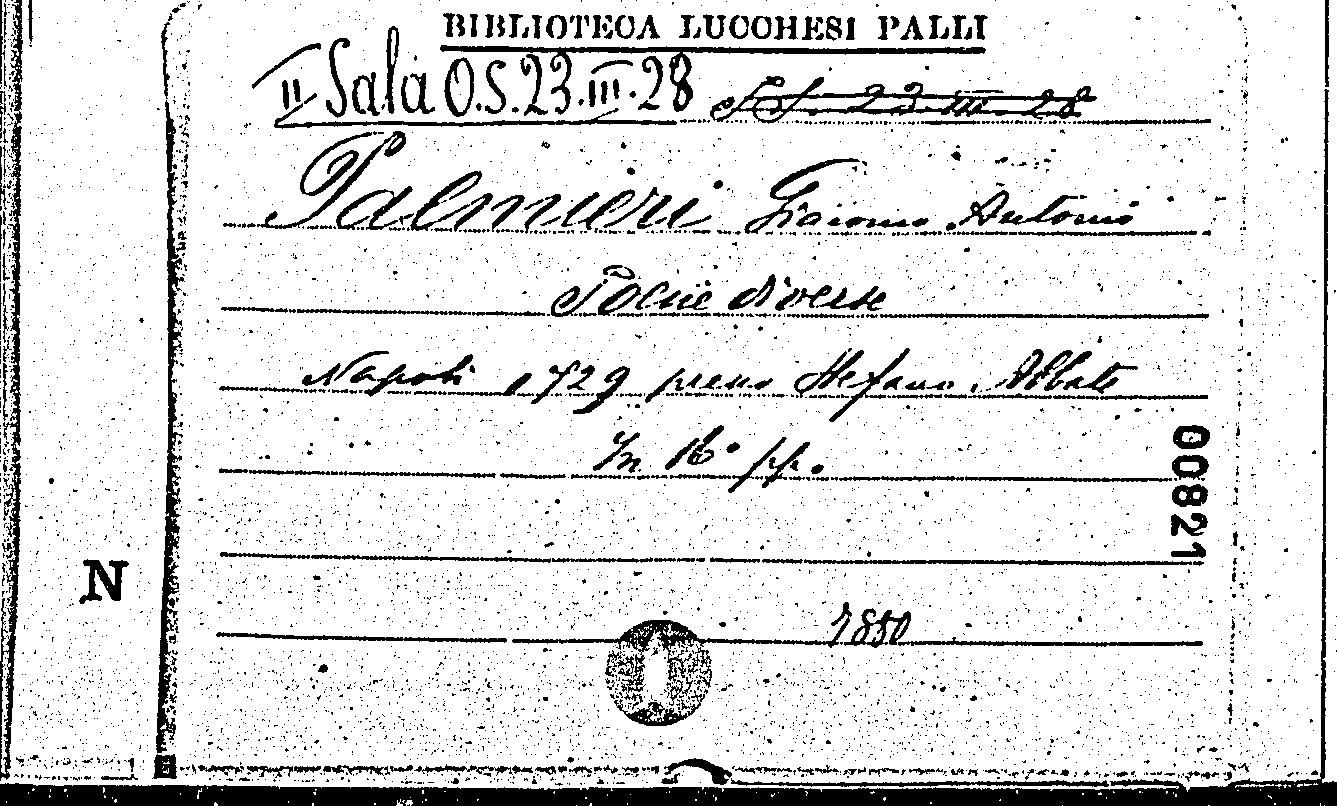 BIBLIOTECA LUCCHESI PALLI
II Sala O.S.23.III.28 S.S. 23.III.28
Palmieri Giacomo Antonio
Poesie diverse
Napoli 1729 presso Stefano Abbate
In 16° pp.
00821
N
7850